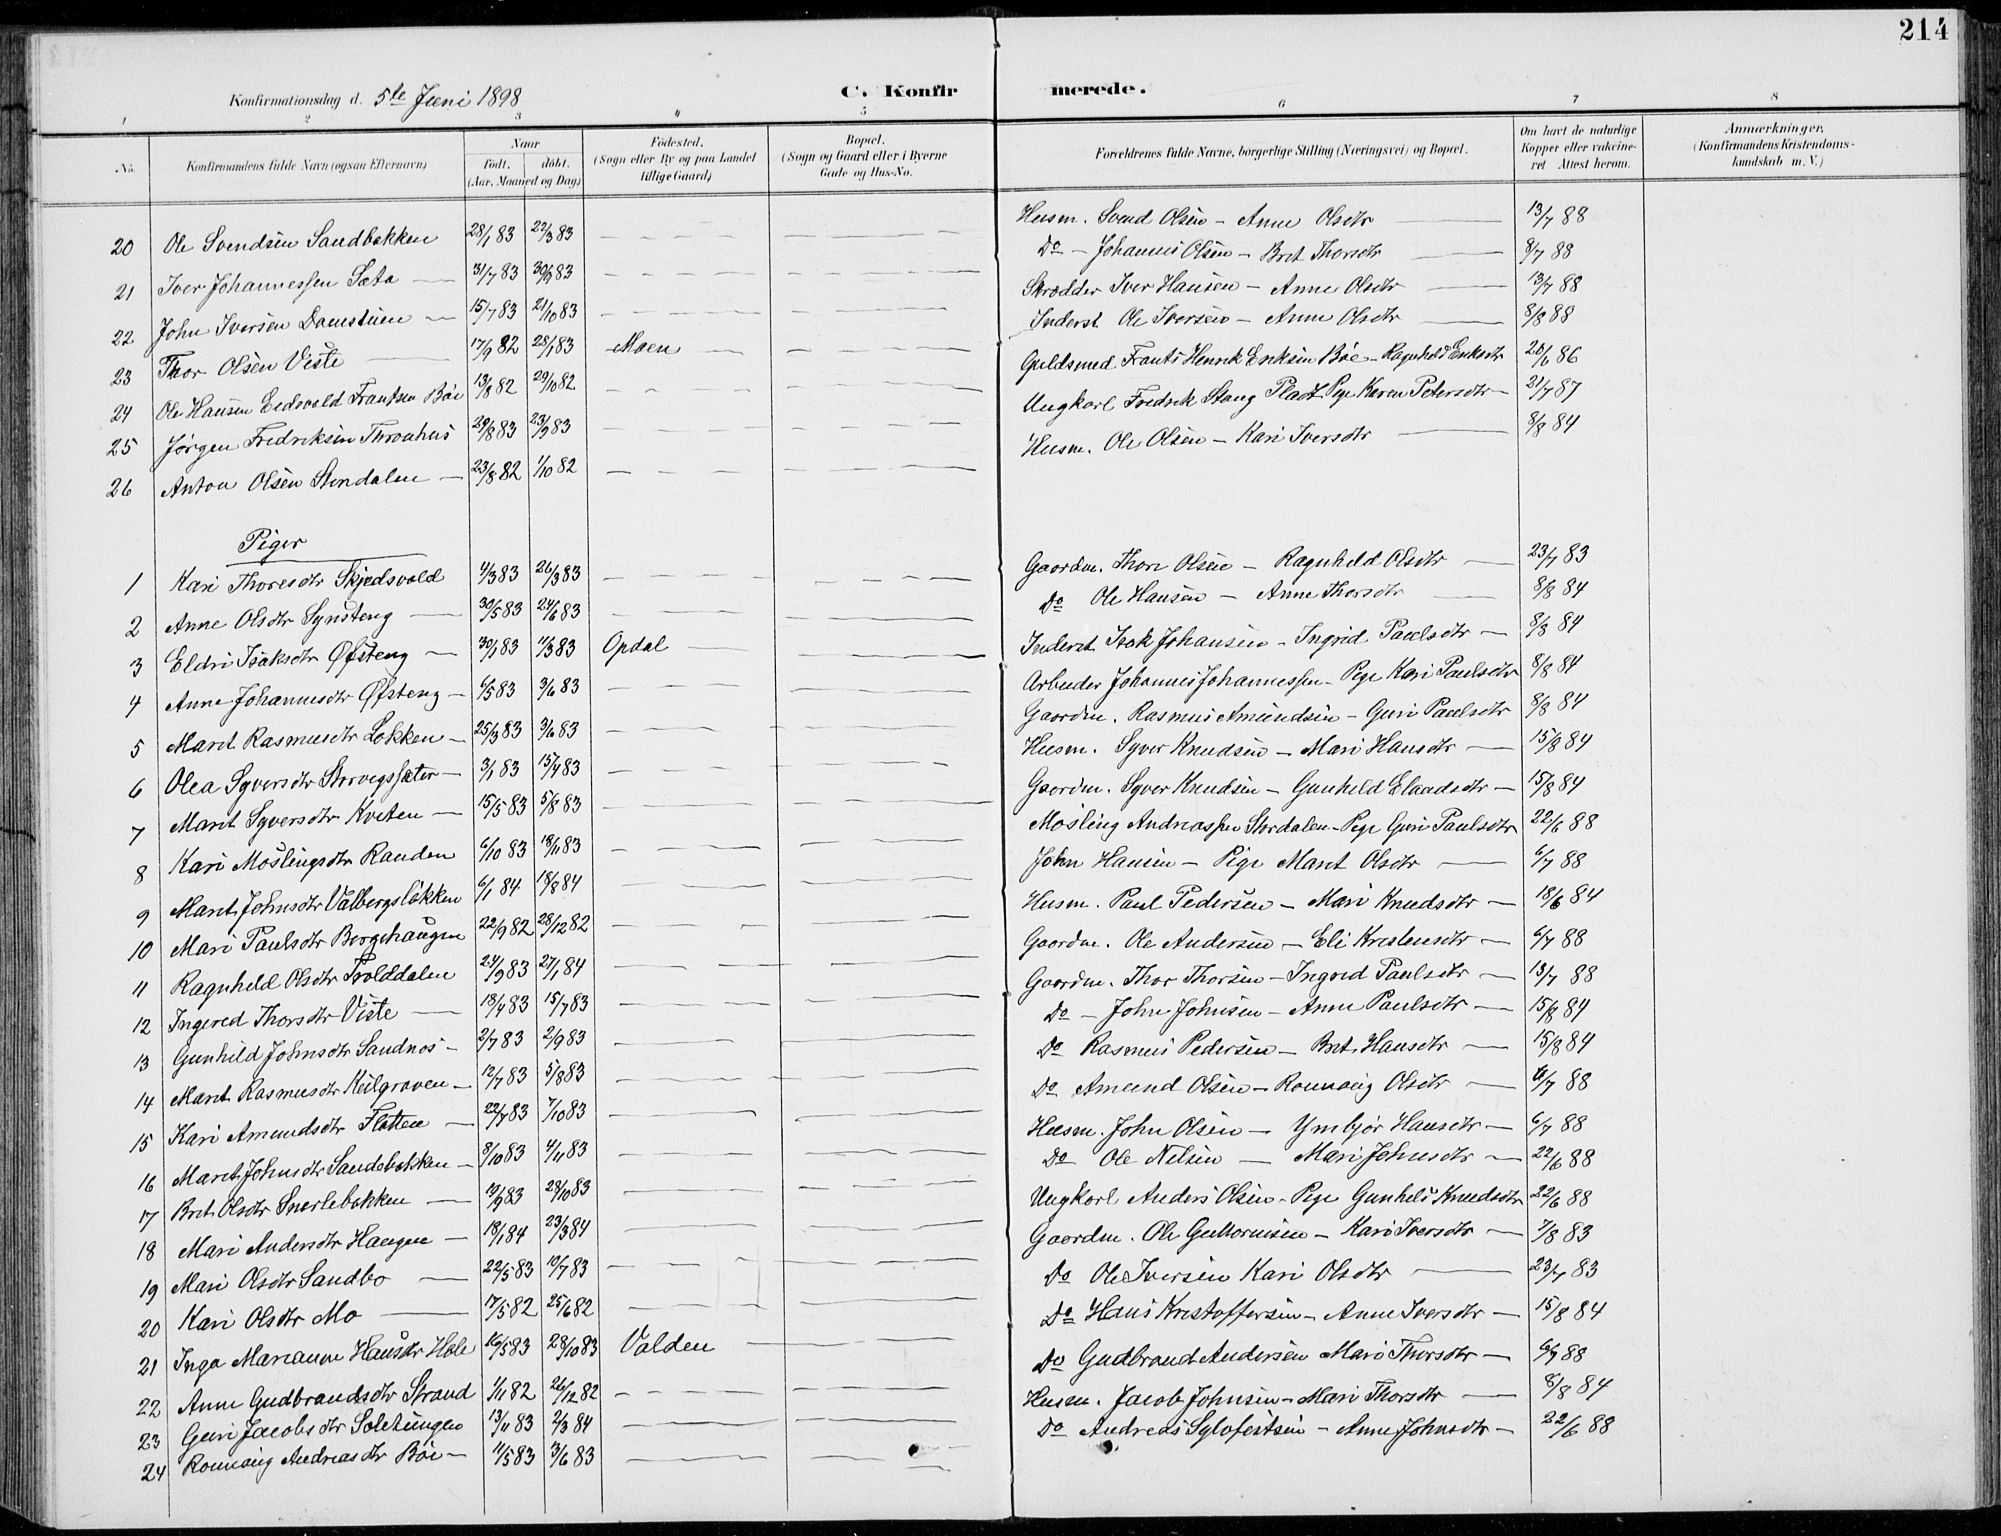 214
Konfirmationsdag d. 5te Juni 1898 C. Konfirmerede.
1 2 3 4 5 6 7 8
No. Konfirmandens fulde Navn (ogsaa Efternavn) Naar født. døbt. (Aar, Maaned og Dag) Fødested. (Sogn eller By og paa Landet tillige Gaard) Bopæl. (Sogn og Gaard eller i Byerne Gade og Hus-No. Forældrenes fulde Navne, borgerlige Stilling (Næringsvei) og Bopæl. Om havt de naturlige Kopper eller vakcineret Attest herom. Anmærkninger. (Konfirmandens Kristendomskundskab m. V.)
20 Ole Svendsen Sandbakken 28/1 83 22/3 83 Husm. Svend Olsen - Anne Olsdtr 13/7 88
21 Iver Johannessen Sata 31/7 83 30/9 83 Do - Johannes Olsen - Brit Thorsdtr 8/7 88
22 John Iversen Damstuen 15/7 83 21/10 83 Skrædder Iver Hansen - Anne Olsdtr 13/7 88
23 Thor Olsen Viste 17/9 82 28/1 83 Moen Inderst Ole Iversen - Anne Olsdtr 8/8 88
24 Ole Hansen Eidsvold Frantsen Böe 13/8 82 29/10 82 Guldsmed Frants Henrik Eriksen Böe - Ragnhild Eriksdtr 20/6 86
25 Jörgen Fredriksen Thronhus 29/8 83 23/9 83 Ungkarl Fredrik Stang Pladt Pige Karen Petersdtr 21/7 87
26 Anton Olsen Stendalen 23/8 82 1/10 82 Husm. Ole Olsen - Kari Iversdtr 8/8 84
Piger
1 Kari Thoresdtr Skjedsvold 4/3 83 26/3 83 Gaardm. Thore Olsen - Ragnheld Olsdtr 23/7 83
2 Anne Olsdtr Synsteng 30/5 83 24/6 83 Do Ole Hansen - Anne Thorsdtr 8/8 84
3 Eldri Isaksdtr Øfsteng 30/1 83 11/3 83 Opdal Inderst Isak Johansen - Ingrid Paulsdtr 8/8 84
4 Anne Johannesdtr Øfsteng 6/5 83 3/6 83 Arbeider Johannes Johannessen - Pige Kari Paulsdtr 8/8 84
5 Marit Rasmusdtr Løkken 25/3 83 3/6 83 Gaardm. Rasmus Amundsen - Guri Paulsdtr 8/8 84
6 Olea Syversdtr Storvegssæter 3/1 83 15/4 83 Husm. Syver Knudsen - Mari Hansdtr 15/8 84
7 Marit Syversdtr Kviten 15/5 83 5/8 83 Gaardm. Syver Knudsen - Gunheld Elandsdtr 15/8 84
8 Kari Möslingsdtr Randen 6/10 83 18/11 83 Mösling Andreassen Stordalen - Pige Guri Paulsdtr 22/6 88
9 Marit Johnsdtr Valbergsløkken 6/1 84 18/8 84 John Hansen - Pige Marit Olsdtr 6/7 88
10 Mari Paulsdtr Borgehaugen 22/9 82 28/12 82 Husm. Paul Pedersen - Mari Knudsdtr 18/6 84
11 Ragnheld Olsdtr Trolddalen 24/9 83 27/1 84 Gaardm. Ole Andersen - Eli Kristensdtr 6/7 88
12 Ingered Thorsdtr Viste 18/4 83 15/7 83 Gaardm. Thor Thorsen - Ingrid Paulsdtr 13/7 88
13 Gunhild Johnsdtr Sandnes 2/7 83 2/9 83 Do - John Johnsen - Anne Paulsdtr 15/8 84
14 Marit Rasmusdtr Keilgraven 12/7 83 5/8 83 Do Rasmus Pedersen - Brit Hansdtr 15/8 84
15 Kari Amundsdtr Flatten 22/7 83 7/10 83 Do Amund Olsen - Rønnaug Olsdtr 6/7 88
16 Marit Johnsdtr Sandebakken 8/10 83 4/11 83 Husm. John Olsen - Ymbjør Hansdtr 6/7 88
17 Brit Olsdtr Snerlebakken 19/9 83 28/10 83 Do Ole Nelsen - Mari Johnsdtr 22/6 88
18 Mari Andersdtr Haugen 18/1 84 23/3 84 Ungkarl Anders Olsen - Pige Gunheld Knudsdtr 22/6 88
19 Mari Olsdtr Sandbo 22/5 83 10/7 83 Gaardm. Ole Guttormsen - Kari Iversdtr 7/8 83
20 Kari Olsdtr Mo 17/5 82 25/6 82 Do Ole Iversen Kari Olsdtr 23/7 83
21 Inga Marianne Hansdtr Hole 16/5 83 28/10 83 Valden Do Hans Kristoffersen - Anne Iversdtr 15/8 84
22 Anne Gudbrandsdtr Strand 1/11 82 26/12 82 Do Gudbrand Andersen Mari Thorsdtr 6/7 88
23 Guri Jacobsdtr Soletungen 13/11 83 2/3 84 Husm. Jacob Johnsen - Mari Thorsdtr 8/8 84
24 Rønnaug Andreasdtr Böe 11/5 83 3/6 83 Do Andreas Sylfestsen - Anne Johnsdtr 22/6 88